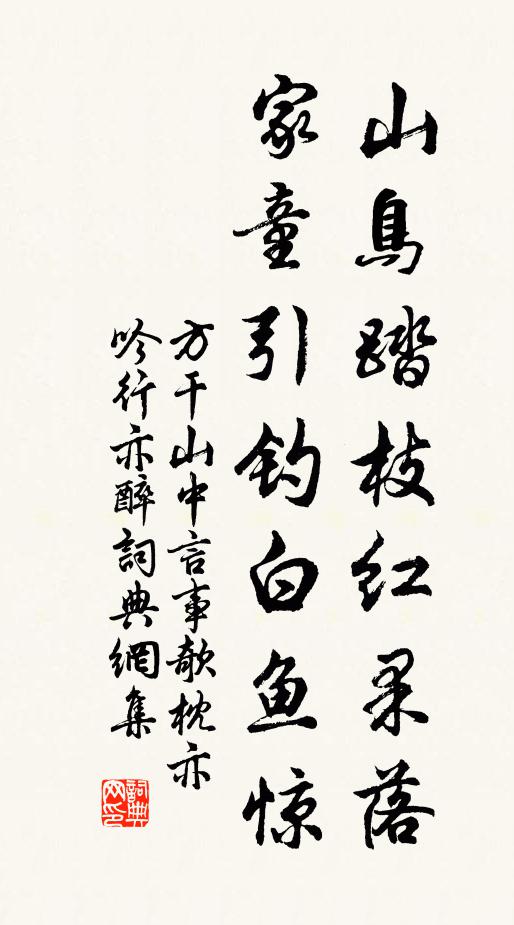 山鳥踏枝红果落
家童引釣白魚惊
方干山中言事欹枕亦
吟行亦醉詞典網集
詞典网印